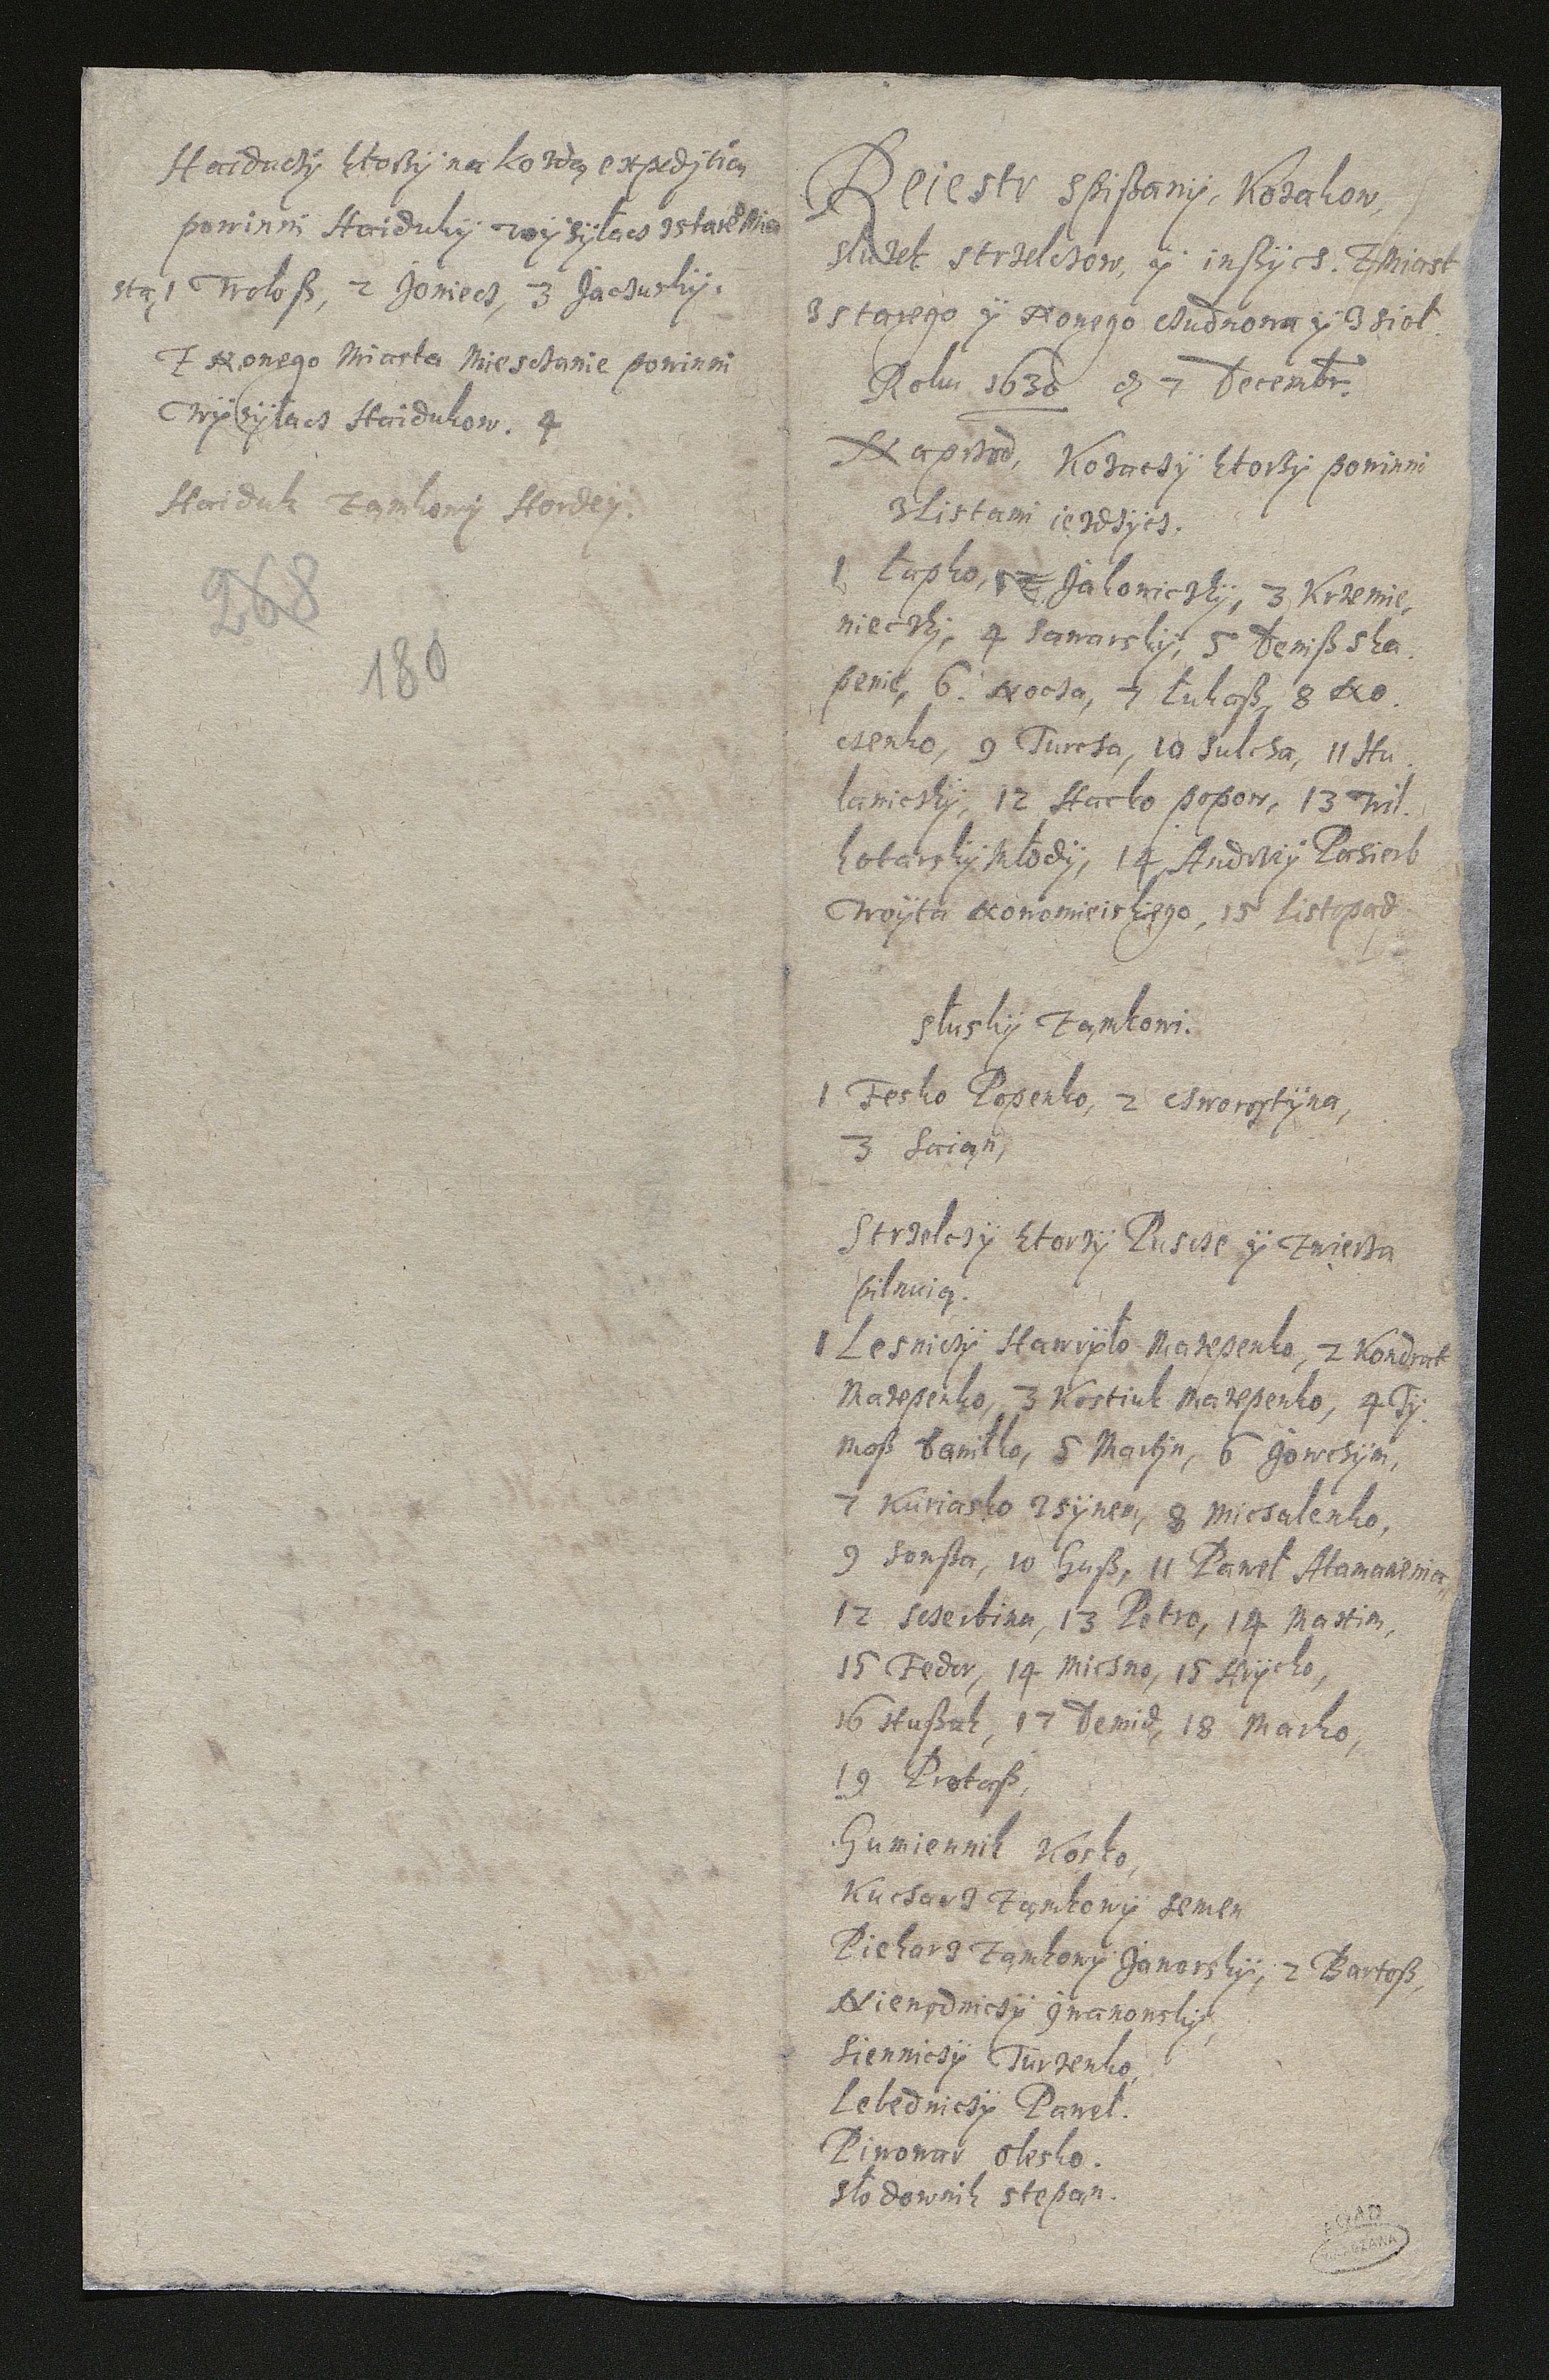 Haiduczÿ ktorzÿ na kozdą expedÿtią
powinni Haidukÿ wÿsÿłacz zstareº Mia
sta, 1 Wołoß, 2 Joniecz, 3 Jaczuskÿ.
Z Nowego Miasta Miesczanie powinni
Wÿsÿłacz Haidukow. 4
Haiduk Zamkowÿ Hordeÿ.
268
180
Reiestr Spißanÿ, Kozakow,
służek strzelczow, ÿ inßÿch. Z Miast
z starego ÿ Nowego Czudnowa ÿ z siol.
Roku 1630 d 7 Decembr.
Naprzod, Kozaczÿ ktorzÿ powinni
z Listami iezdzÿcz.
1 Łapko, 2 Jakowiczkÿ, 3 Krzemie,
nieczkÿ, 4 Sawarskÿ, 5 Denißska
penie, 6. Nocza, 7 Łukaß, 8 No.
czenko, 9 Turcza, 10 Sulcza, 11 Hu.
laniczkÿ, 12 Hacko popow, 13 Wil.
kotarskÿ Młodÿ, 14 Andrzeÿ Pasierb
Woÿta Nowomieiskiego, 15 Listopad
Służkÿ Zamkowi.
1 Fesko Popenko, 2 Chworostÿna,
3 Saian,
Strzelczÿ ktorzÿ Puscze ÿ Zwierza
pilnuią.
1 Lesniczÿ Hawrÿło Mazepenko, 2 Kondrat
Mazepenko, 3 Kostiuk Mazepenko, 4 Tÿ.
moß Daniłko, 5 Martÿn, 6 Jowchÿm,
7 Kuriasko zsÿnem, 8 Michalenko,
9 Sowßa, 10 Guß, 11 Paweł Atamanenia,
12 Sczerbina, 13 Petro, 14 Maxim,
15 Fedor, 14 Michno, 15 Hrÿcko,
16 Hußak, 17 Demid, 18 Marko,
19 Protaß,
Gumiennik Kosko,
Kucharz Zamkowÿ Semen
Piekarz Zamkowÿ Janowskÿ, 2 Bartoß,
Niewodniczÿ Jwanowskÿ,
Sienniczÿ Turzenko,
Lebedniczÿ Paweł.
Piwowar Olesko.
Słodownik Stepan.
AGAD
WARSZAWA